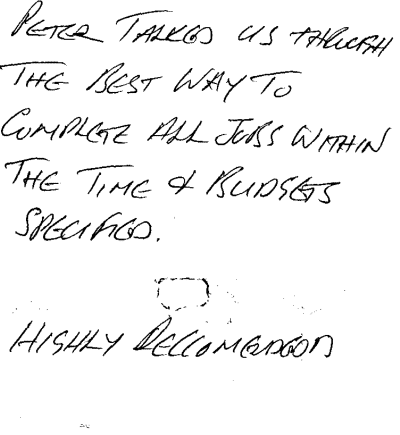 PETER TALKED US THROUGH
THE BEST WAY TO
COMPLETE ALL JOBS WITHIN
THE TIME & BUDGETS
SPECIFIED.
HIGHLY RECCOMENDED